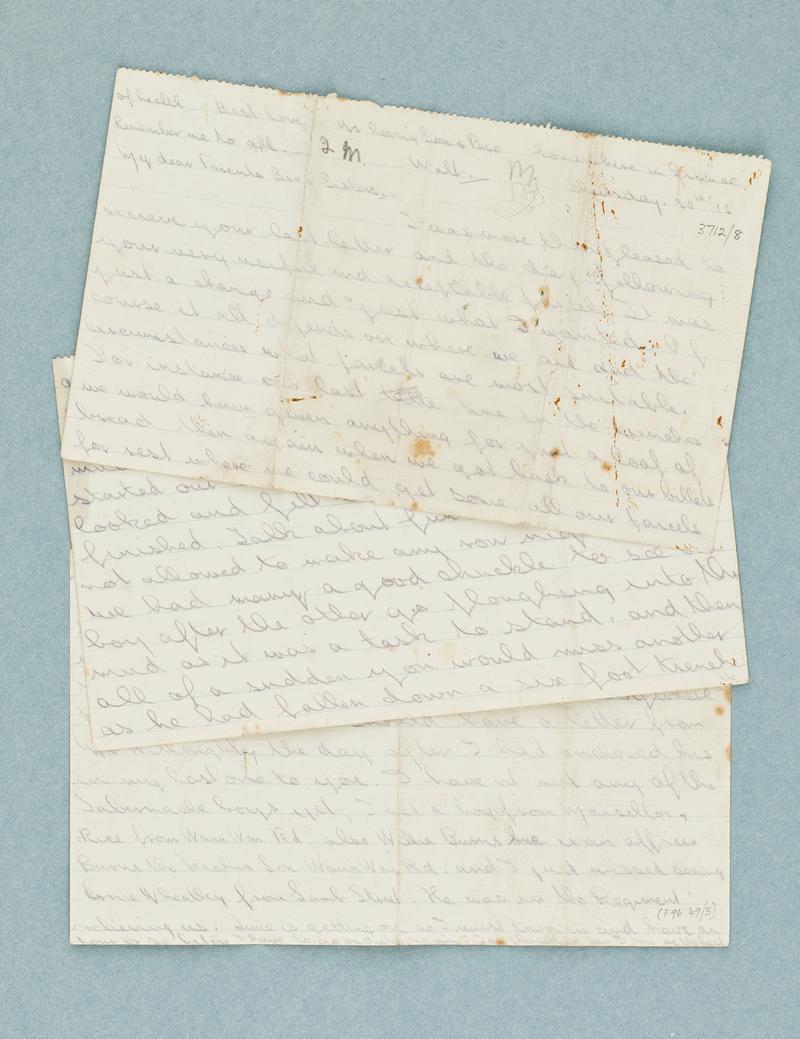 of health. Best love Yr loving Son & Bro Somewhere in France.
Remember me to all. Walt. Thursday. 30th '15
2 M.
3712/8
My dear Parents Bro & Sisters,
I was more than pleased to
receive your last letter and the day following
your very useful and acceptable parcel. It was
just a change and just what I wanted. Of
course it all depends on where we are and the
circumstances what parcels are most suitable.
For instance our last time in the trenches
we would have given anything for just a loaf of
bread then again when we got back to our billets
for rest where we could get some, all our parcels
started out
looked and felt
finished. Talk about fun
not allowed to make any row
we had many a good chuckle to see
boy after the other go ploughing into the
mud as it was a task to stand, and then
all of a sudden you would miss another
as he had fallen down a six foot trench
should have a letter from
Willoughby the day after I had enclosed his
in my last one to you. I havent met any of the
Tabernacle boys yet, I met a boy from Manselton,
Rice from Waun Wen Rd. also Willie Burns he is an officer
Burns the Teacher Son Waun Wen Rd. and I just missed seeing
Ernie Wheatley from Lamb Street. He was in the Regiment
(F96.49/5)
relieving us. Time is getting on so I must turn in and have an